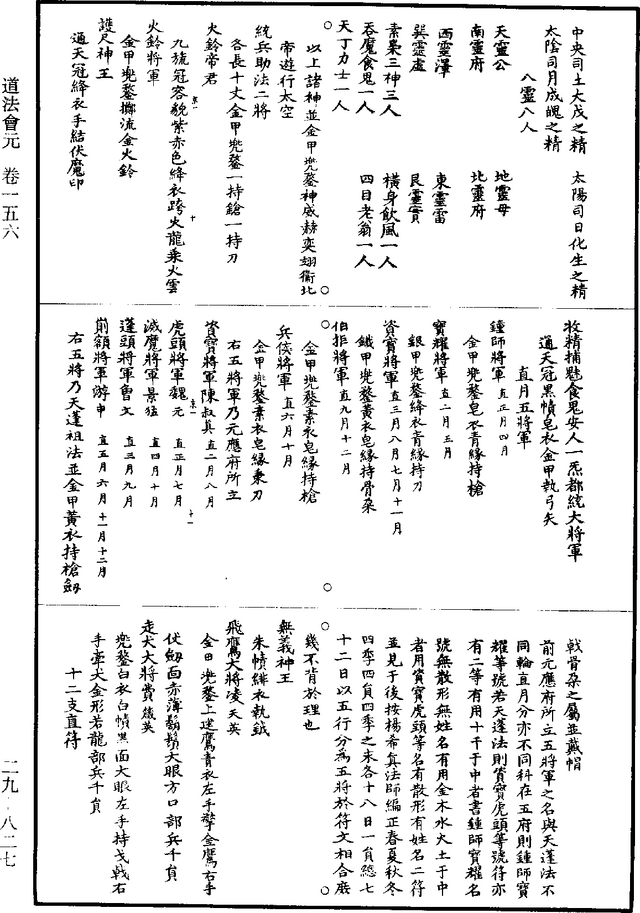 道法會元　卷一五六
二九‧八二七
中央司土大戊之精　太陽司日化生之精
太陰司月成魄之精
八靈八人
天靈公　地靈母
南靈府　北靈府
西靈澤　東靈雷
巽靈虛　艮靈實
素梟三神三人　橫身飲風一人
吞魔食鬼一人　四目老翁一人
天丁力士一人
以上諸神並金甲兜鍪神威赫奕翅衞北
帝遊行太空
統兵助法二將
各長十丈金甲兜鍪一持鎗一持刀
火鈴帝君
九旒冠容貌紫赤色絳衣跨火龍乘火雲
火鈴將軍
金甲兜鍪擲流金火鈴
護尺神王
通天冠絳衣手結伏魔印
收精捕魅食鬼安人一炁都統大將軍
通天冠黑幘皂衣金甲執弓矢
直月五將軍
鍾師將軍　直正月四月
金甲兜鍪皂衣青緣持槍
寶耀將軍　直二月三月
銀甲兜鍪絳衣青緣持刀
資寶將軍　直三月八月七月十一月
鐵甲兜鍪黃衣皂緣持骨朵
伯拒將軍　直九月十二月
金甲兜鍪素衣皂緣持槍
兵侯將軍　直六月十月
金甲兜鍪素衣皂緣秉刀
右五將軍乃元應府所立
資寶將軍陳叔真　直二月八月
虎頭將軍魏元　直正月七月
滅魔將軍景猛　直四月十月
蓬頭將軍曹文　直三月九月
崩額將軍游申　直五月六月十一月十二月
右五將乃天蓬祖法並金甲黃衣持槍劒
戟骨朶之屬並戴帽
前元應府所立五將軍之名與天蓬法不
同輪直月分亦不同科在五府則鍾師寶
耀等號若天蓬法則資寶虎頭等號符亦
有二等有用十干于中者書鍾師寶耀名
號無散形無姓名有用金木水火土于中
者用資寶虎頭等名有散形有姓名二符
並見于後按楊希真法師編正春夏秋冬
四季四員四季之末各十八日一員總七
十二日以五行分為五將於符文相合庶
幾不背於理也
無義神王
朱幘緋衣執鉞
飛鷹大將凌天英
金甲兜鍪上建鷹青衣左手擎金鷹右手
伏劒面赤薄鬍鬚大眼方口部兵千員
走犬大將賁鐵英
兜鍪白衣白幘黑面大眼左手持戈戟右
手牽犬金形若龍部兵千員
十二支直符